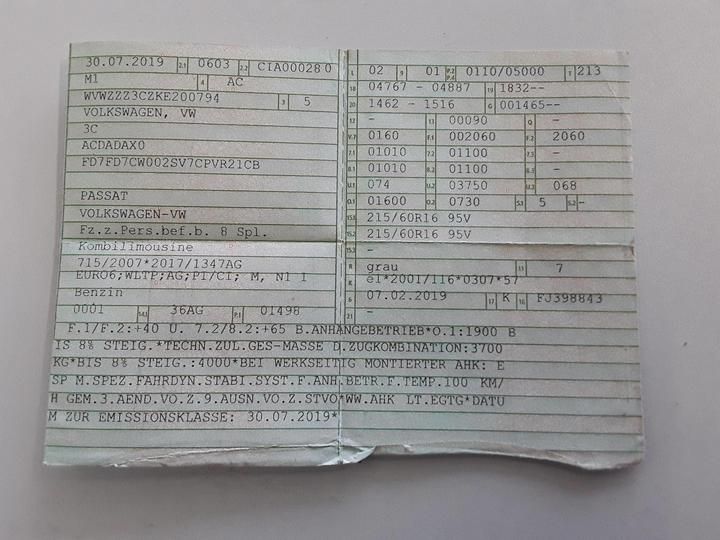 30.07.2019 2.1 0603 2.2 CIA000280
M1 4 AC
WVWZZZ3CZKE200794 3 5
VOLKSWAGEN, VW
3C
ACDADAX0
FD7FD7CW002SV7CPVR21CB
PASSAT
VOLKSWAGEN-VW
Fz.z.Pers.bef.b. 8 Spl.
Kombilimousine
715/2007*2017/1347AG
EURO6;WLTP;AG;PI/CI; M, N1 I
Benzin
0001 14.1 36AG P.1 01498
L 02 9 01 P.2 P.4 0110/05000 T 213
18 04767 - 04887 19 1832--
20 1462 - 1516 G 001465--
12 - 13 00090 Q -
V.7 0160 F.1 002060 F.2 2060
7.1 01010 7.2 01100 7.3 -
8.1 01010 8.2 01100 8.3 -
U.1 074 U.2 03750 U.3 068
O.1 01600 O.2 0730 S.1 5 S.2 -
15.1 215/60R16 95V
15.2 215/60R16 95V
15.3 -
R grau 11 7
K e1*2001/116*0307*57
6 07.02.2019 17 K 16 FJ398843
21 -
F.1/F.2:+40 U. 7.2/8.2:+65 B.ANHÄNGEBETRIEB*O.1:1900 B
IS 8% STEIG.*TECHN.ZUL.GES-MASSE D.ZUGKOMBINATION:3700
KG*BIS 8% STEIG.:4000*BEI WERKSEITIG MONTIERTER AHK: E
SP M.SPEZ.FAHRDYN.STABI.SYST.F.ANH.BETR.F.TEMP.100 KM/
H GEM.3.AEND.VO.Z.9.AUSN.VO.Z.STVO*WW.AHK LT.EGTG*DATU
M ZUR EMISSIONSKLASSE: 30.07.2019*